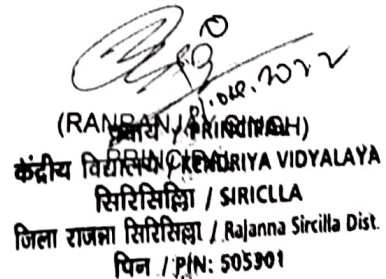 (RANRANJAY SINGH)
प्राचार्य / PRINCIPAL
PRINCIPAL
केंद्रीय विद्यालय / KENDRIYA VIDYALAYA
सिरिसिल्लि / SIRICLLA
जिला राजन्ना सिरिसिल्ला / Rajanna Sircilla Dist.
पिन / PIN: 505301